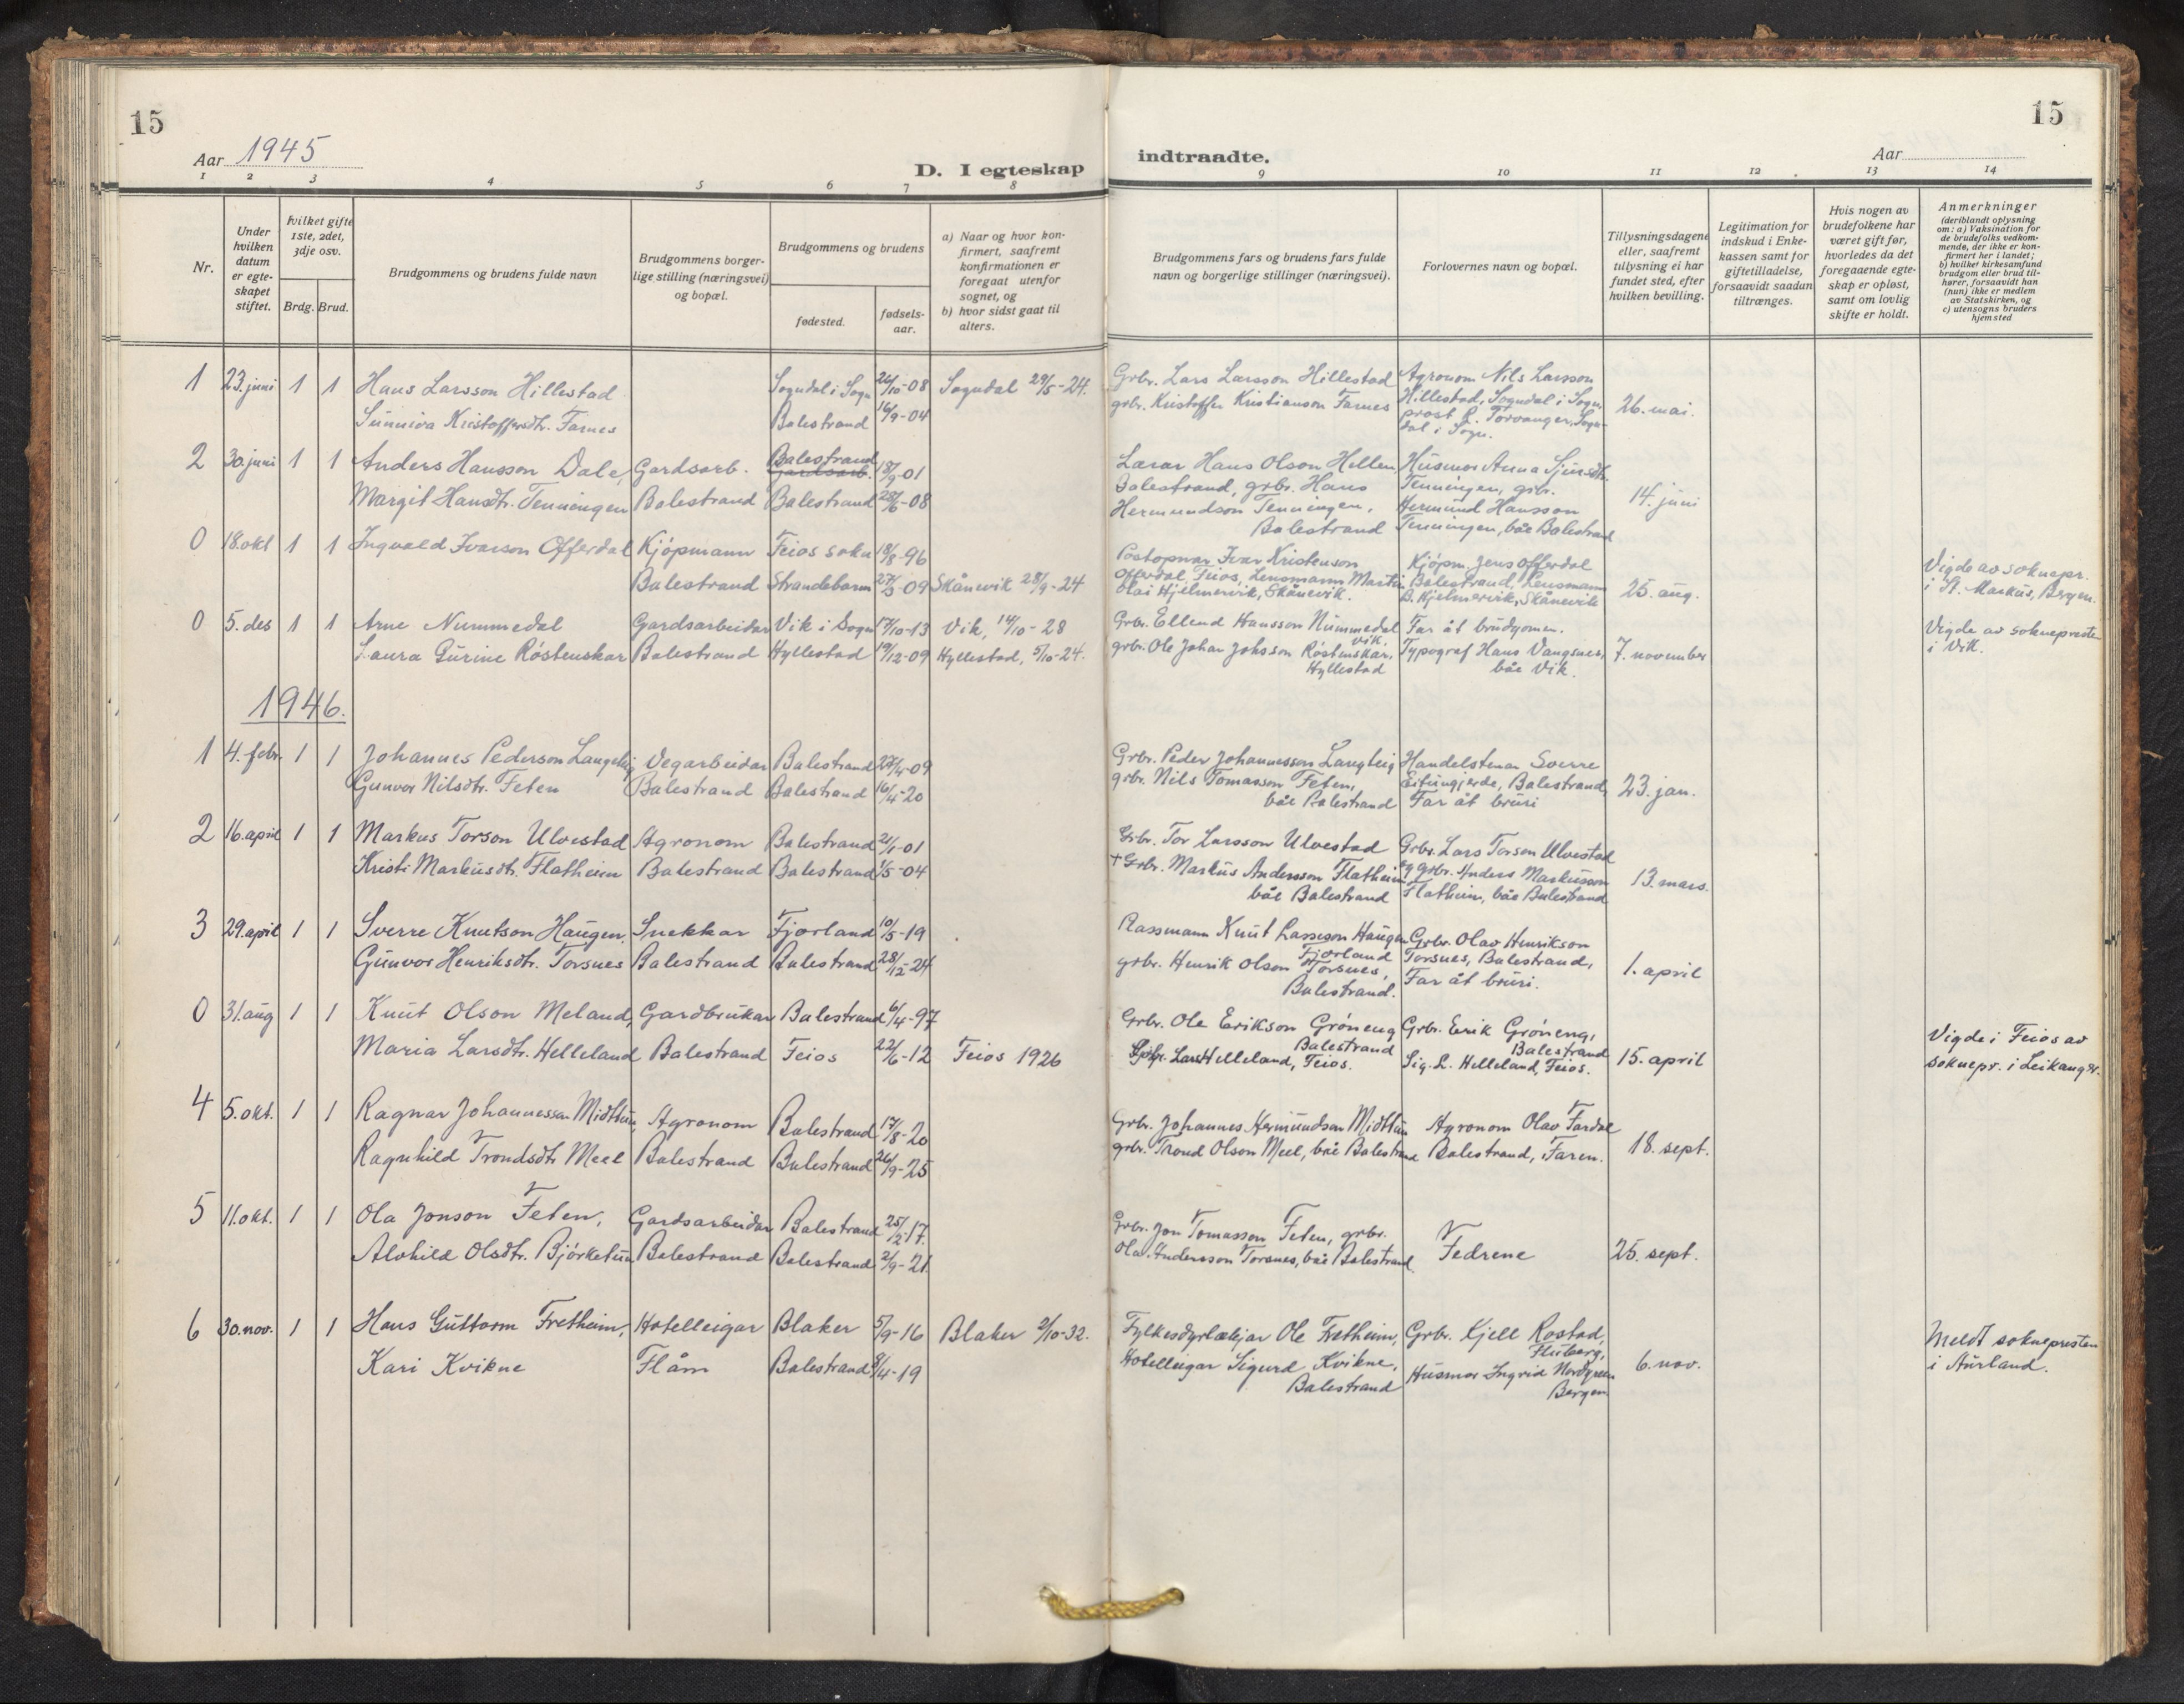 15
Aar 1945
D. I egteskap
indtraadte.
Aar
15
1 2 3 4 5 6 7 8 9 10 11 12 13 14
Nr.
Under hvilken datum er egteskapet stiftet.
Hvilket gifte 1ste, 2det, 3dje osv.
Brdg. Brud.
Brudgommens og brudens fulde navn
Brudgommens borgerlige stilling (næringsvei) og bopæl.
Brudgommens og brudens
fødested.
fødselsaar.
a) Naar og hvor konfirmert, saafremt konfirmationen er foregaat utenfor sognet, og
b) hvor sidst gaat til alters.
Brudgommens fars og brudens fars fulde navn og borgerlige stillinger (næringsvei).
Forlovernes navn og bopæl.
Tillysningsdagene eller, saafremt tillysning ei har fundet sted, efter hvilken bevilling.
Legitimation for indskud i Enkekassen samt for giftetilladelse, forsaavidt saadan tiltrænges.
Hvis nogen av brudefolkene har været gift før, hvorledes da det foregaaende egteskap er opløst, samt om lovlig skifte er holdt.
Anmerkninger (deriblandt oplysning om: a) Vaksination for de brudefolks vedkommende, der ikke er konfirmert her i landet; b) hvilket kirkesamfund brudgom eller brud tilhører, forsaavidt han (hun) ikke er medlem av Statskirken, og c) utensogns bruders hjemsted
1 23. juni 1 1 Hans Larsson Hillestad Sogndal i Sogn 26/10-08 Sogndal 29/5-24. Grbr. Lars Larsson Hillestad Agronom Nils Larsson
Sunniva Kristoffersdtr. Farnes Balestrand 16/9-04 grbr. Kristoffer Kristianson Farnes Hillestad, Sogndal i Sogn, 26. mai.
prost R. Torvanger, Sogn-
dal i Sogn.
2 30. juni 1 1 Anders Hansson Dale, Gardsarb. Balestrand Gardsarb. 18/9-01 Lærar Hans Olson Hellen Husmor Anna Sjursdtr.
Margit Hansdtr. Tenningen Balestrand Balestrand 28/6-08 Balestrand, grbr. Hans Tenningen, grbr. 14. juni
Hermundson Tenningen, Hermund Hansson
Balestrand Tenningen, båe Balestrand
0 18. okt 1 1 Ingvald Ivarson Offerdal Kjøpmann Feios sokn 18/8-96 Postopnar Ivar Kristenson Kjøpm. Jens Offerdal Vigde av soknepr.
Balestrand Strandebarm 27/3-09 Skånevik 28/9-24 Offerdal, Feios, Lensmann Martin Balestrand, Lensmann 25. aug. i St. Markus, Bergen.
Olai Hjelmervik, Skånevik. B. Hjelmervik, Skånevik
0 5. des 1 1 Arne Nummedal Gardsarbeidar Vik i Sogn 17/10-13 Vik, 14/10-28 Grbr. Ellend Hansson Nummedal Far åt brudgomen. Vigde av soknepresten
Vik.
Laura Gurine Røstenskar Balestrand Hyllestad 19/12-09 Hyllestad, 5/10-24. grbr. Ole Johan Johsson Røstenskar, Typograf Hans Vangsnes, 7. november i Vik.
Hyllestad båe Vik.
1946.
1 4. febr. 1 1 Johannes Pederson Langeteig Vegarbeidar Balestrand 27/4-09 Grbr. Peder Johannesson Langteig Handelsmann Sverre
Gunvor Nilsdtr. Feten Balestrand Balestrand 16/4-20 grbr. Nils Tomasson Feten, Eitungjerde, Balestrand, 23. jan.
båe Balestrand Far åt bruri
2 16. april 1 1 Markus Torson Ulvestad Agronom Balestrand 21/1-01 Grbr. Tor Larsson Ulvestad Grbr. Lars Torson Ulvestad
Kristi Markusdtr. Flatheim Balestrand Balestrand 1/5-04 + Grbr. Markus Andersson Flatheim og grbr. Anders Markusson 13. mars.
båe Balestrand Flatheim, båe Balestrand
3 29. april 1 1 Sverre Knutson Haugen, Snekkar Fjærland 10/5-19 Rassmann Knut Lasseson Haugen Grbr. Olav Henrikson
Fjærland
Gunvor Henriksdtr. Torsnes Balestrand Balestrand 28/12-24 grbr. Henrik Olson Torsnes, Torsnes, Balestrand, 1. april
Balestrand. Far åt bruri.
0 31. aug 1 1 Knut Olson Meland, Gardbrukar Balestrand 6/4-97 Grbr. Ole Erikson Grøneng Grbr. Erik Grøneng, Vigde i Feios av
Balestrand Balestrand
Maria Larsdtr. Helleland Balestrand Feios 22/6-12 Feios 1926 Lars Helleland, Feios. Sig. L. Helleland, Feios. 15. april soknepr. i Leikanger.
4 5. okt. 1 1 Ragnar Johannessen Midttun, Agronom Balestrand 17/8-20 Grbr. Johannes Hermundson Midttun Agronom Olav Fardal
Ragnhild Trondsdtr Meel Balestrand Balestrand 26/9-25 grbr. Trond Olson Meel, båe Balestrand Balestrand, Faren. 18. sept.
5 11. okt. 1 1 Ola Jonson Feten, Gardsarbeidar Balestrand 25/2-17. Grbr. Jon Tomasson Feten, grbr.
Alvhild Olsdtr. Bjørketun Balestrand Balestrand 2/9-21. Olav Andersson Torsnes, båe Balestrand. Fedrene 25. sept.
6 30. nov. 1 1 Hans Guttorm Fretheim, Hotelleigar Blaker 5/9-16 Blaker 2/10-32. Fylkesdyrlækjar Ole Fretheim, Grbr. Kjell Rostad, Meldt soknepresten
Fluberg,
Kari Kvikne Flåm Balestrand 8/4-19 Hotelleigar Sigurd Kvikne, Husmor Ingrid Nordgreen 6. nov. i Aurland.
Balestrand Bergen